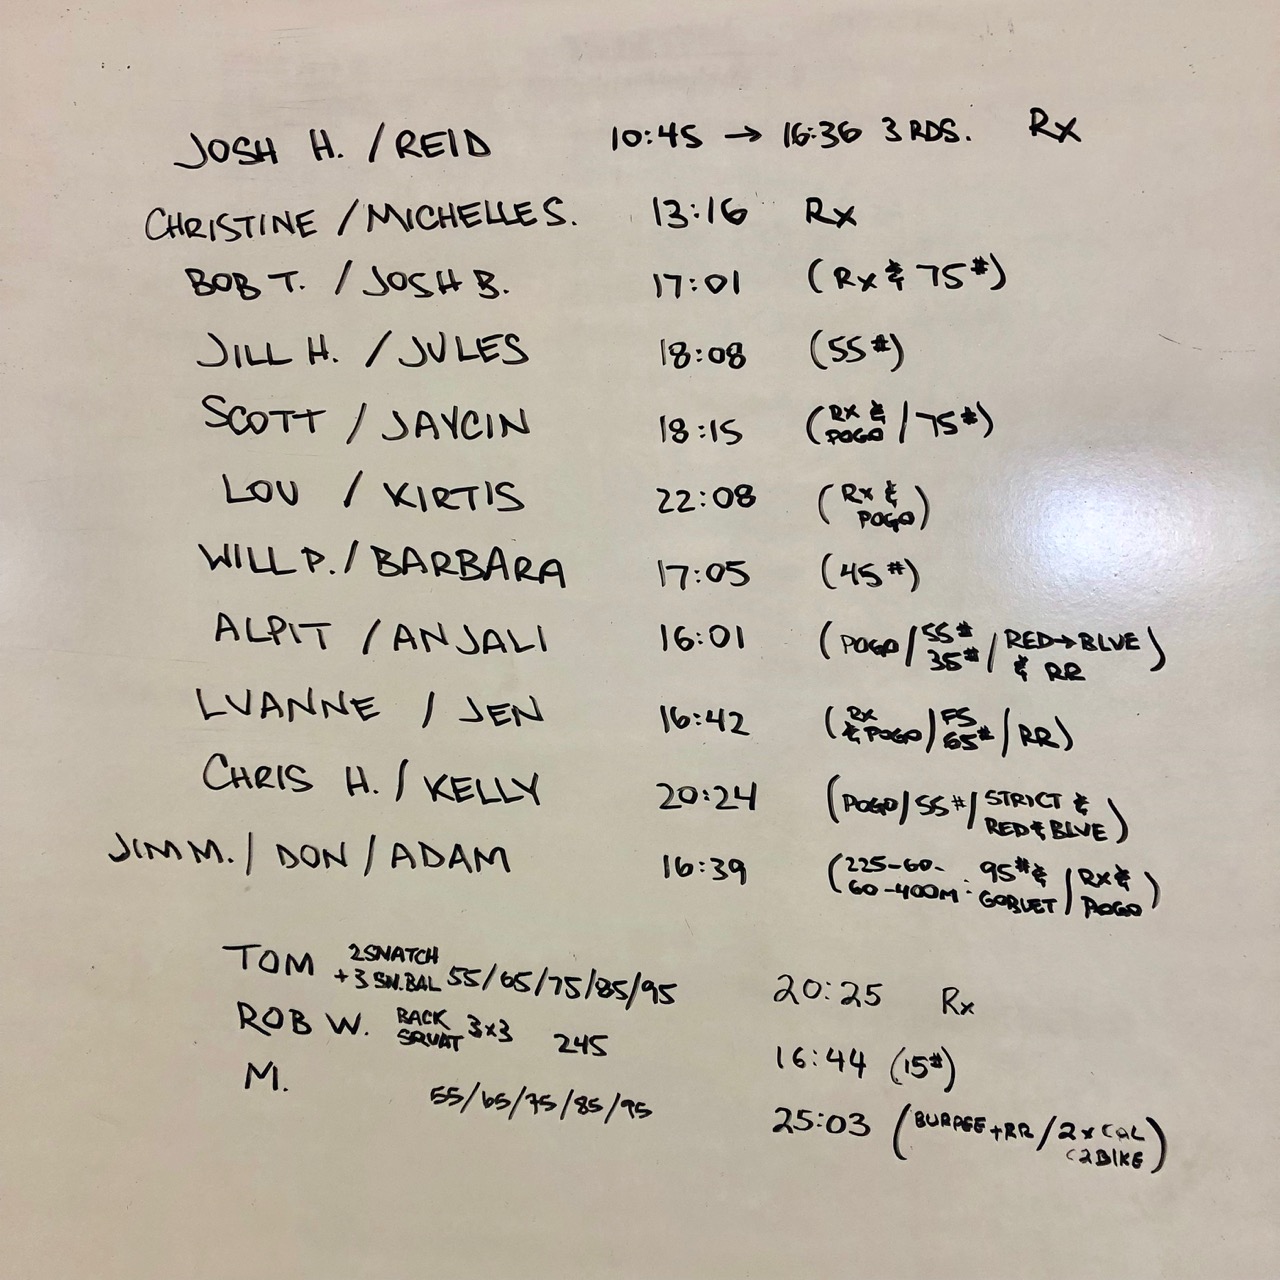 JOSH H. / REID 10:45 → 16:36 3 RDS. Rx
CHRISTINE / MICHELLE S. 13:16 Rx
BOB T. / JOSH B. 17:01 (Rx & 75#)
JILL H. / JULES 18:08 (55#)
SCOTT / JAYCIN 18:15 (RX & POGO / 75#)
LOU / KIRTIS 22:08 (Rx & POGO)
WILL P. / BARBARA 17:05 (45#)
ALPIT / ANJALI 16:01 (POGO / 55# 35# / RED→BLUE & RR)
LUANNE / JEN 16:42 (RX & POGO / FS 65# / RR)
CHRIS H. / KELLY 20:24 (POGO / 55# / STRICT & RED & BLUE)
JIM M. / DON / ADAM 16:39 (225-60-60-400M: 95# & GOBLET / RX & POGO)
TOM 2 SNATCH + 3 SN. BAL 55/65/75/85/95 20:25 Rx
ROB W. BACK SQUAT 3x3 245 16:44 (15#)
M. 55/65/75/85/95 25:03 (BURPEE + RR / 2 x CAL C2 BIKE)